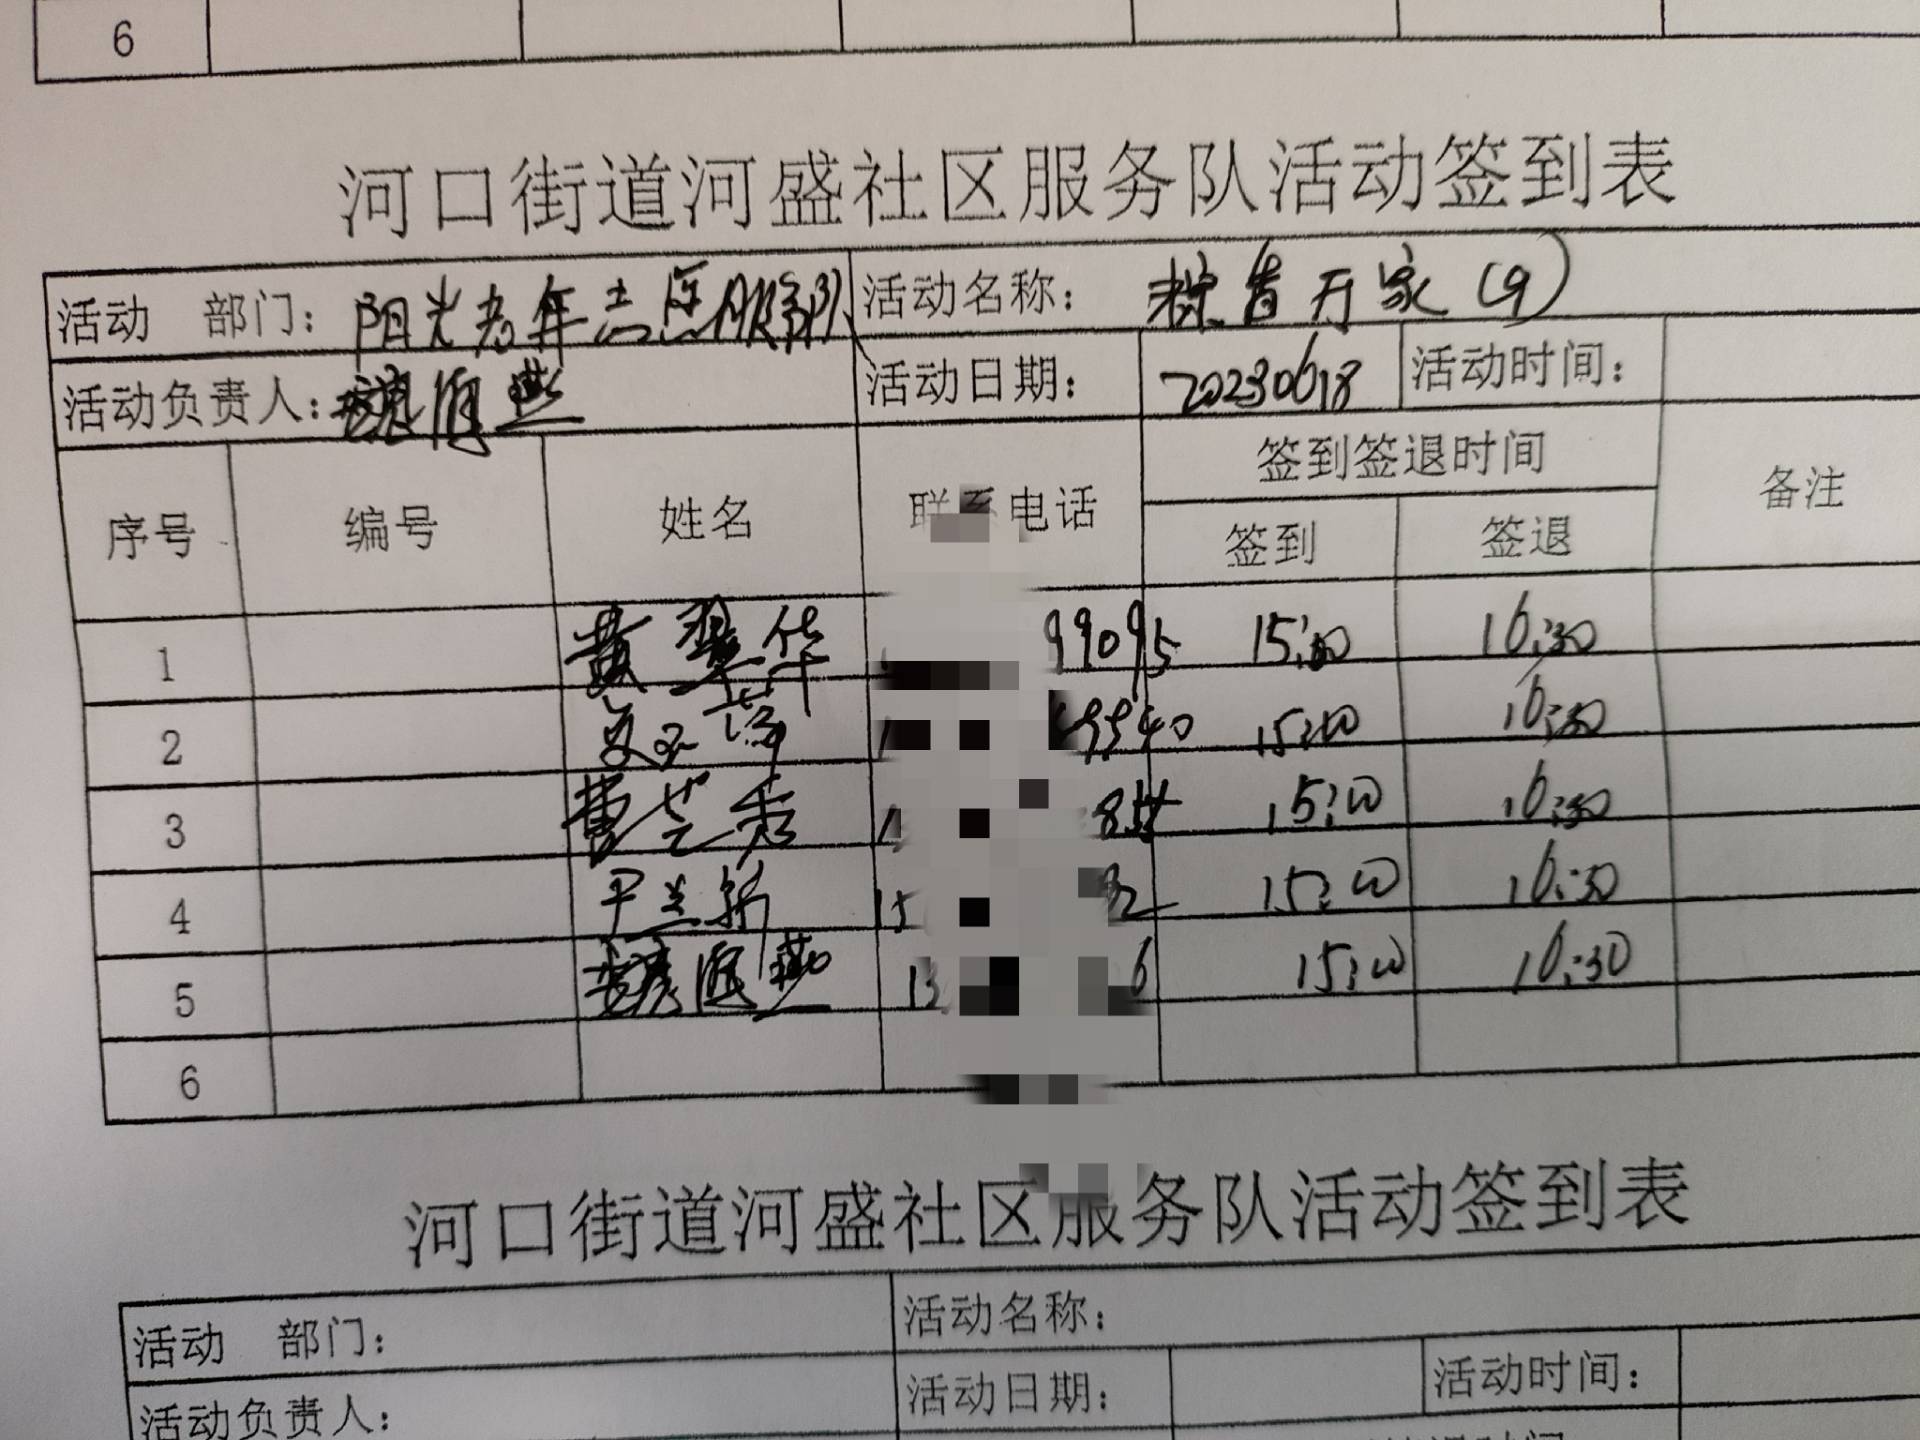 6
河口街道河盛社区服务队活动签到表
活动 部门: 阳光老年志愿服务队 活动名称: 粽香万家(9)
活动负责人: 活动日期: 20230618 活动时间:
序号 编号 姓名 联系电话 签到签退时间 备注
签到 签退
1 黄翠华 99095 15:00 16:30
2 49940 15:00 16:30
3 曹芝秀 15:00 16:30
4 尹兰新 15 82 15:00 16:30
5 13 6 15:00 16:30
6
河口街道河盛社区服务队活动签到表
活动 部门: 活动名称:
活动负责人: 活动日期: 活动时间: